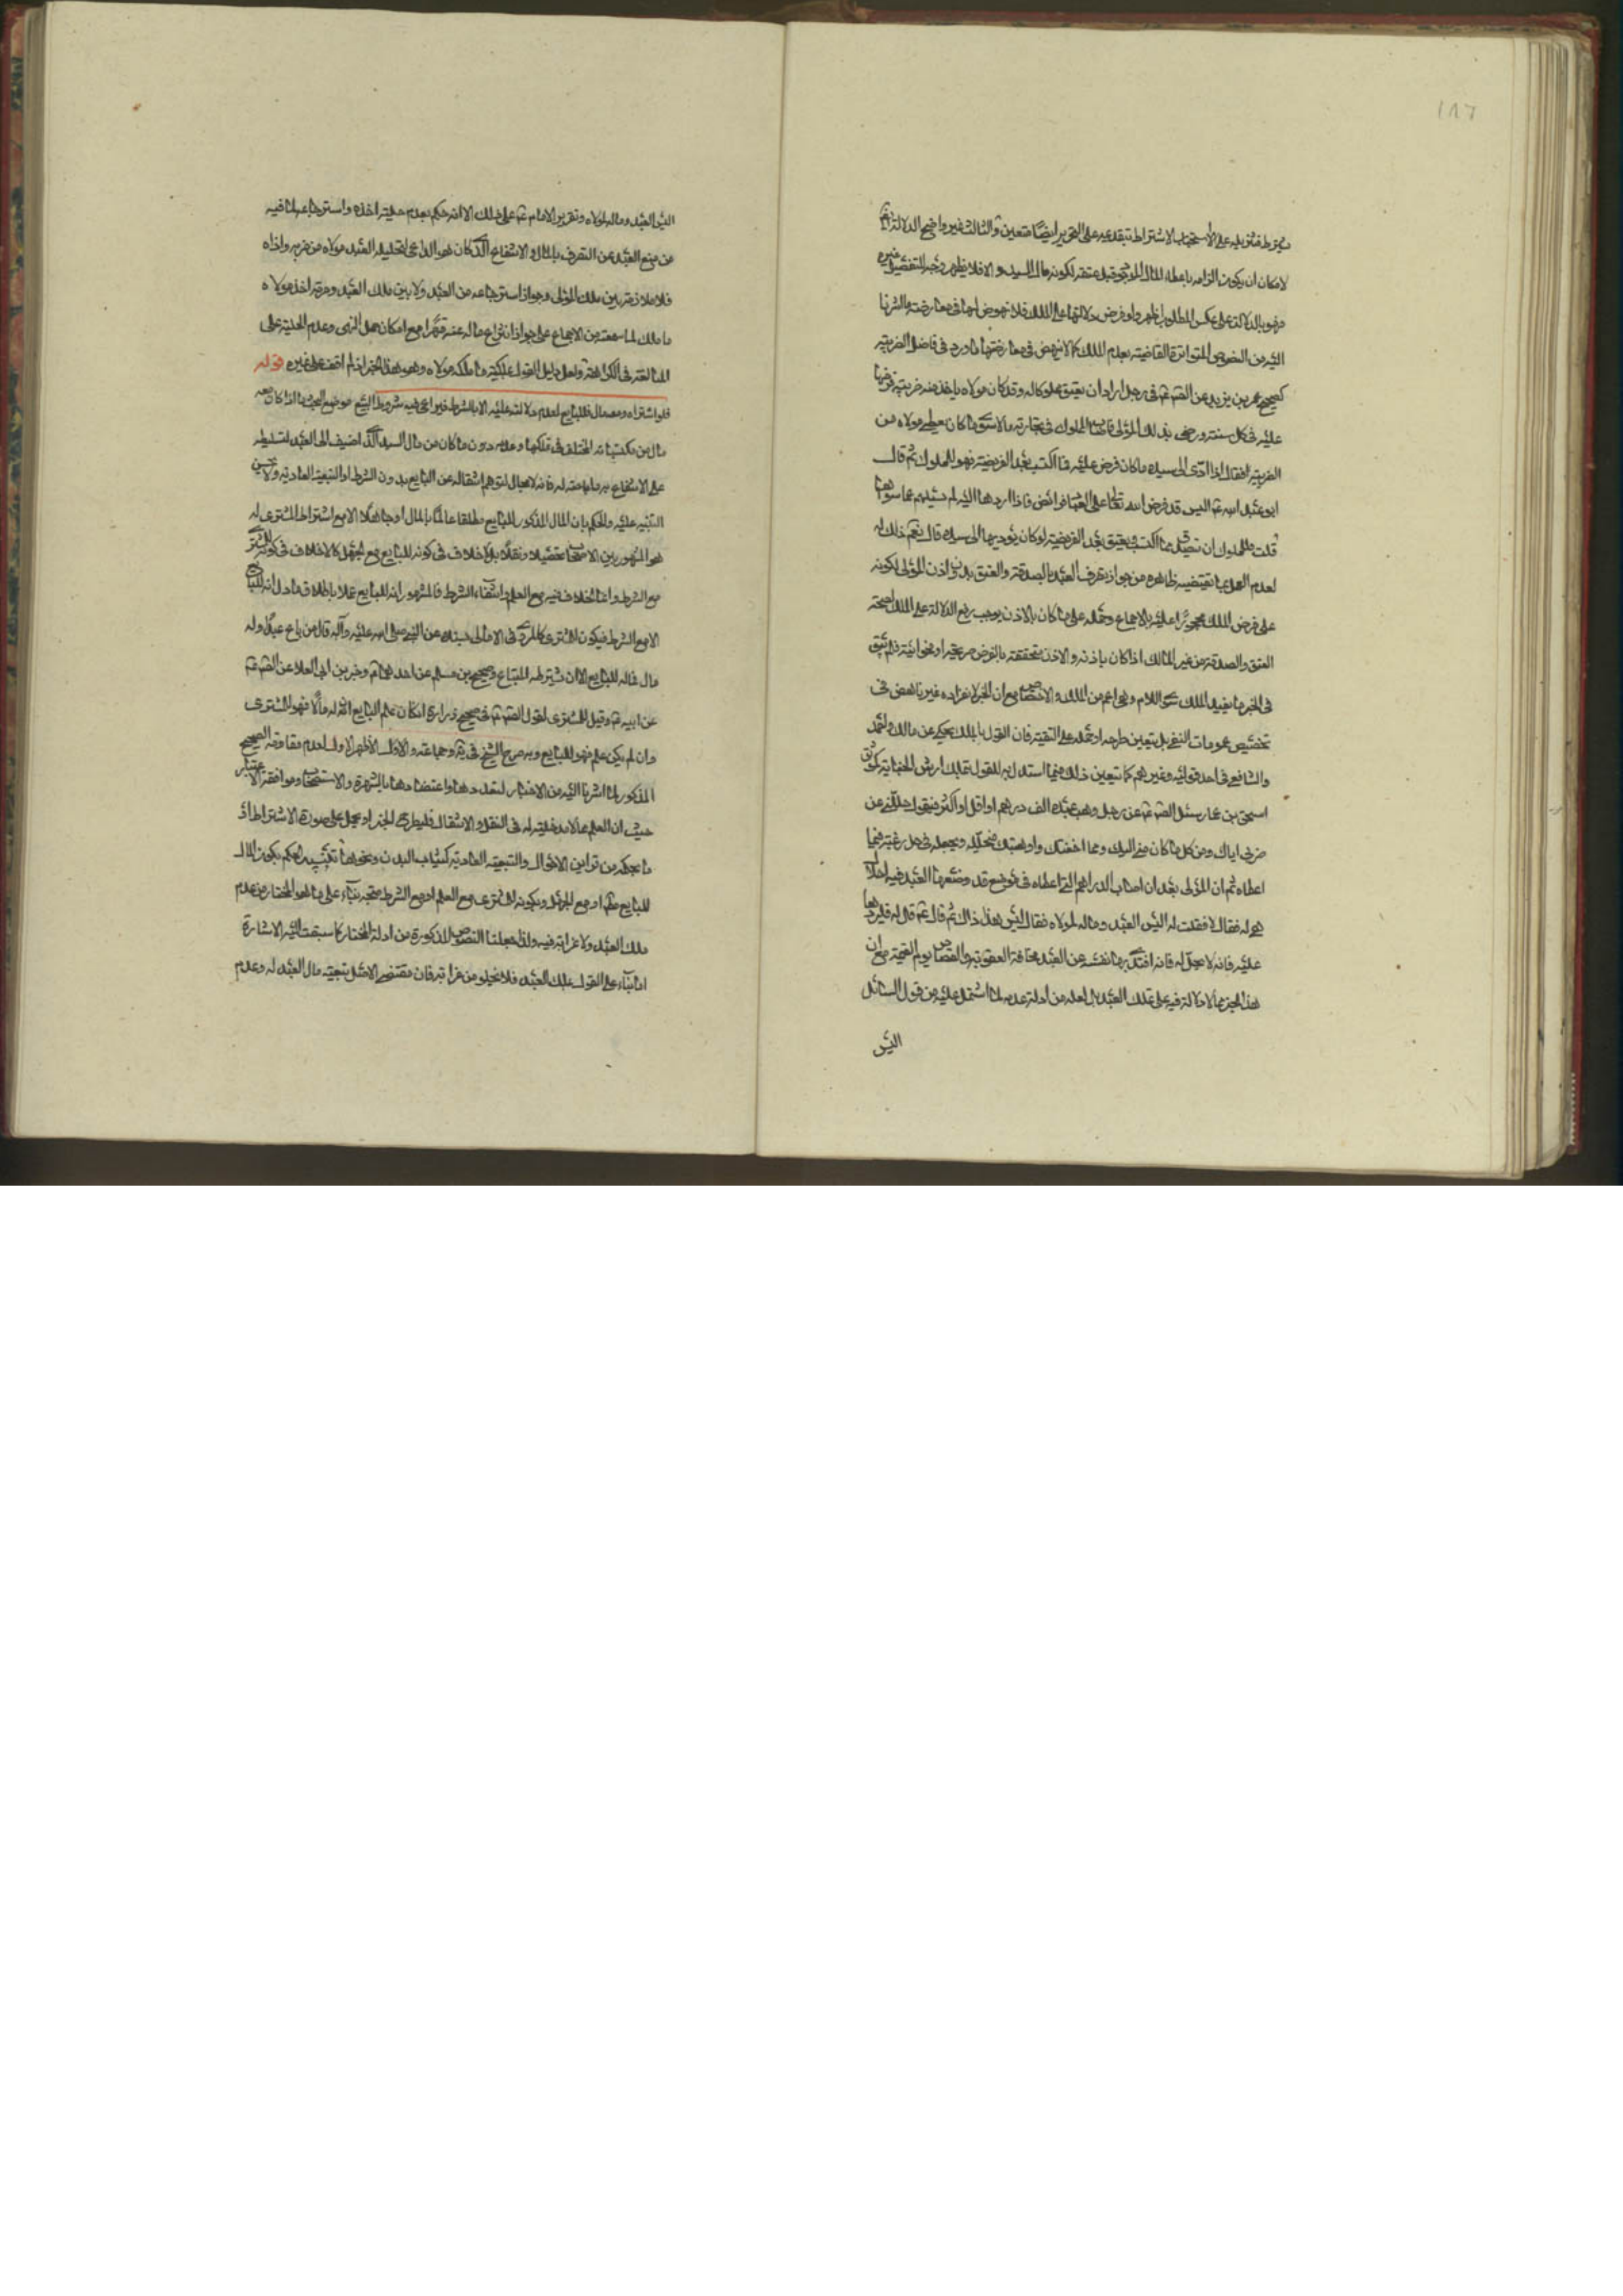 ١٨٦
يشترط فتنزيله على الاستحباب لاشتراط تبقدعيه على التحرير ايضا متعين والثالث غير واضح الدلالة
لامكان ان يكون الزامه باعطاء المال الموجود قبل عتقه لكونه مال السيد والا فلا يظهر وجه للتفصيل
فهو بالدلالة على عكس المطلوب اظهر ولو فرض دلالتها على الملك فلا نهوض لها في معارضة ما اشرنا
اليه من النصوص المتواترة القاضية بعدم الملك كما لا ينهض في معارضتها ما ورد في فاضل الضريبة
كصحيح عمر بن يزيد عن الصم عم في رجل اراد ان يعتق مملوكا له وقد كان مولاه ياخذ منه ضريبة فرضها
عليه في كل سنة ورضى بذلك المولى فاصاب المملوك في تجارته مالا سوى ما كان يعطى مولاه من
الضريبة فقال اذا ادى الى سيده ما كان فرض عليه فما اكتسب بعد الفريضة فهو للمملوك ثم قال
ابو عبد الله عم اليس قد فرض الله تعالى على العباد فرائض فاذا ادوها اليه لم يسئلهم عما سواها
قلت فللمملوك ان يتصدق مما اكتسب ويعتق بعد الفريضة لو كان يؤديها الى سيده قال نعم ذلك له
لعدم العمل بما يقتضيه ظاهره من جواز تصرف العبد بالصدقة والعتق بدون اذن المولى لكونه
على فرض الملك محجورا عليه بالاجماع وحمله على ما كان بالاذن يوجب رفع الدلالة على الملك لصحة
العتق والصدقة من غير المالك اذا كان باذنه والاذن متحققة بالفرض صريحة او فحوائية فلم يبق
في الخبر ما يفيد الملك سوى اللام وهي اعم من الملك والاختصاص مع ان الخبر لانفراده غير ناهض في
تخصيص عمومات النفي بل يتعين طرحه او حمله على التقية فان القول بالملك يحكى عن مالك واحمد
والشافعي في احد قوليه وغيرهم كما يتعين ذلك فيما استدل به للقول بملك ارش الجناية كموثق
اسحق بن عمار سئل الصم عم عن رجل وهب عبده الف درهم او اقل او اكثر فيقول حللني عن
ضربي اياك ومن كل ما كان مني اليك ومما اخفتك وارهبتك فيحلله ويجعله في حل رغبة فيما
اعطاه ثم ان المولى بعد ان اصاب الدراهم التي اعطاه في موضع قد وضعها العبد فيه احلالا
هي له فقال لا فقلت له اليس العبد وماله لمولاه فقال ليس هذا ذاك ثم قال عم قال له فليردها
عليه فانه لا يحل له فانه افتدى بها نفسه من العبد مخافة العقوبة والقصاص يوم القيمة مع ان
هذا الخبر مما لا دلالة فيه على تملك العبد بل لعله من ادلة عدمه لما اشتمل عليه من قول السائل
اليس
اليس العبد وماله لمولاه وتقرير الامام عم على ذلك الا انه حكم بعدم حلية اخذه واسترجاعه لما فيه
من منع العبد عن التصرف بالمال والانتفاع الذي كان هو الداعي لتحليل العبد مولاه من ضربه واذاه
فلا ملازمة بين ملك المولى وجواز استرجاعه من العبد ولا بين ملك العبد وحرمة اخذ مولاه
ما ملك لما سمعته من الاجماع على جواز انتزاع ماله عنه قهرا مع امكان حمل النهى وعدم الحلية على
المبالغة في الكراهة ولعل دليل القول بملكية ما ملكه مولاه وهو هذا الخبر اذ لم اقف على غيره قوله
فلو اشتراه ومعه مال فللبايع لعدم دلالته عليه الا بالشرط فيراعى فيه شروط البيع موضع البحث ما اذا كان معه
مال من مكتسباته المختلف في تملكها وعدمه دون ما كان من مال السيد الذي اضيف الى العبد لتسليطه
على الانتفاع به فانه لا مجال لتوهم انتقاله عن البايع بدون الشرط او التبعية العادية ولا يحسن
التنبيه عليه والحكم بان المال المذكور للبايع مطلقا عالما بالمال او جاهلا الا مع اشتراط المشترى له
هو المشهور بين الاصحاب تحصيلا ونقلا بل لا خلاف في كونه للبايع مع الجهل كما لا خلاف في كونه للمشترى
مع الشرط وانما الخلاف فيه مع العلم وانتفاء الشرط فالمشهور انه للبايع عملا باطلاق ما دل انه للبايع
الا مع الشرط فيكون للمشترى كالمروى في الامالى مسندا عن النبي صلى الله عليه وآله قال من باع عبدا وله
مال فماله للبايع الا ان يشترطه المبتاع وصحيح بن مسلم عن احدهما عم وخبر بن ابي العلا عن الصم عم
عن ابيه عم وقيل للمشترى لقول الصم عم في صحيح زرارة ان كان علم البايع ان له مالا فهو للمشترى
وان لم يكن علم فهو للبايع وبه صرح الشيخ في يه وجماعة والاول الاظهر الاول لعدم مقاومة الصحيح
المذكور لما اشرنا اليه من الاخبار لتعددها واعتضادها بالشهرة والاستصحاب وموافقة الاعتبار
حيث ان العلم مما لا مدخلية له في النقل والانتقال فليطرح الخبر او يحمل على صورة الاشتراط او
ما بحكمه من قراين الاحوال والتبعية العادية كثياب البدن ونحوها ثم تقييد الحكم بكون المال
للبايع او مع الجهل وبكونه للمشترى مع العلم او مع الشرط متجه بناء على ما هو المختار من عدم
ملك العبد ولا غرابة فيه ولذا جعلنا النصوص المذكورة من ادلة المختار كما سبقت اليه الاشارة
اما بناء على القول بملك العبد فلا يخلو من غرابة فان مقتضى الاصل تبعية مال العبد له وعدم